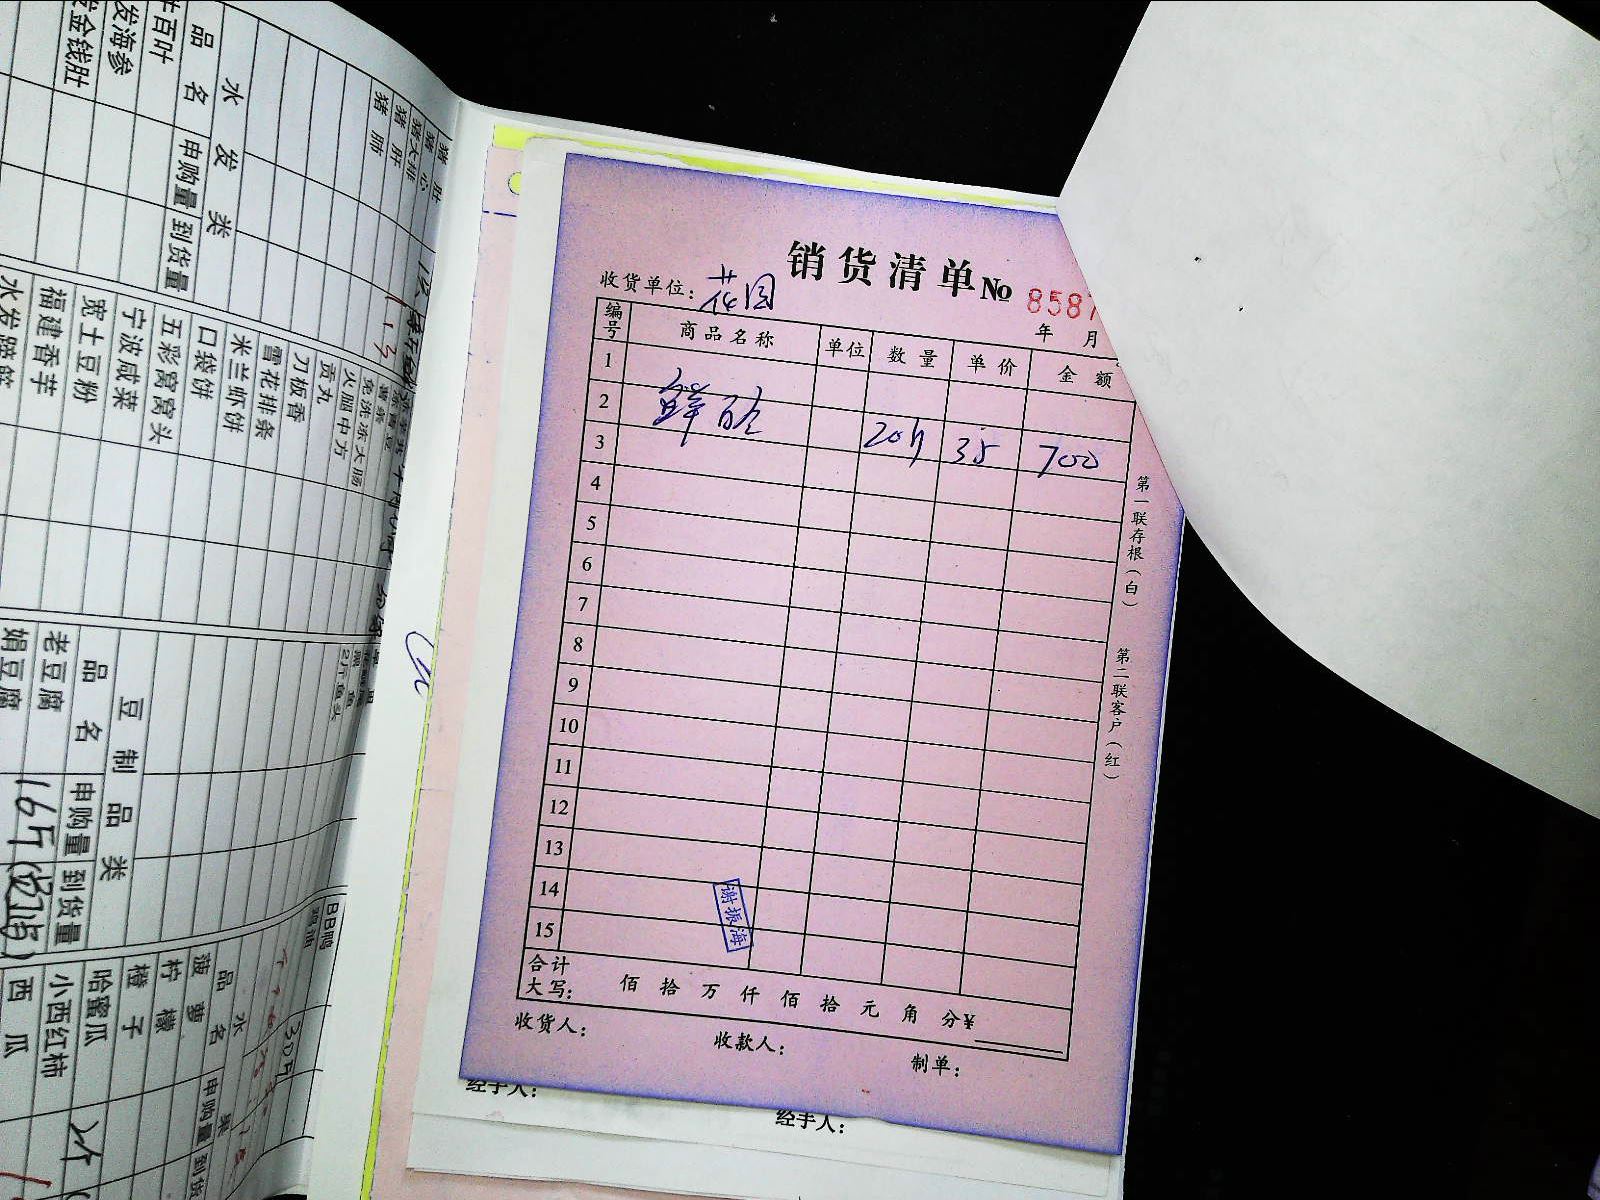 销货清单 № 8587
收货单位: 花园
年 月
编号 商品名称 单位 数量 单价 金额
1
2 鲜
3 20斤 35 700
4
5
6
7
8
9
10
11
12
13
14
15
谢振海
合计
大写: 佰 拾 万 仟 佰 拾 元 角 分¥
收货人: 收款人: 制单:
第一联存根(白) 第二联客户(红)
经手人:
经手人:
猪肚
猪心
猪大排
猪肝
猪肺
水发类
品名 申购量 到货量
牛百叶
发海参
发金钱肚
免洗冻大肠
火腿中方
贡丸
刀板香
雪花排条
米兰虾饼
口袋饼
五彩窝窝头
宁波咸菜
宽土豆粉
福建香芋
水发蹄筋
豆制品类
品名 申购量 到货量
老豆腐
娟豆腐 16斤
BB鸭
水果
品名 申购量 到货
菠萝
柠檬
橙子
哈蜜瓜
小西红柿
西瓜